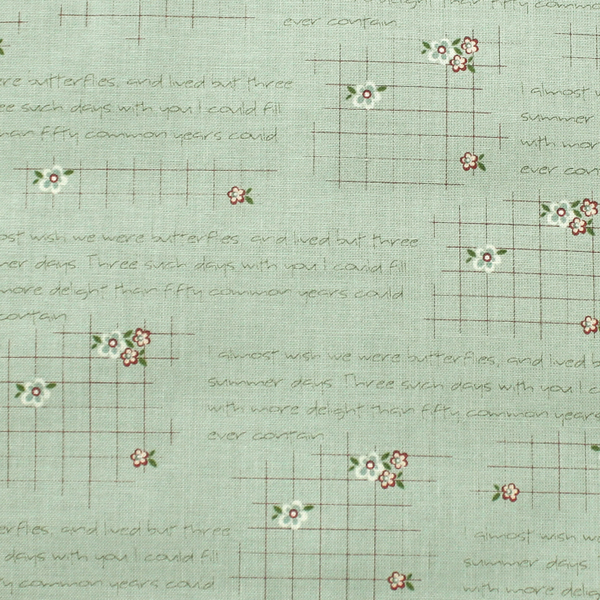 ever contain.
ere butterflies, and lived but three
ee such days with you I could fill
han fifty common years could
I almost w
summer
with mor
ever con
ost wish we were butterflies, and lived but three
mer days. Three such days with you I could fill
more delight than fifty common years could
contain
I almost wish we were butterflies, and lived b
summer days. Three such days with you I c
with more delight than fifty common years
ever contain.
erflies, and lived but three
days with you I could fill
ty common years could
almost wish w
summer days.
with more delig